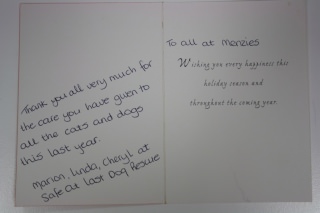 Thank you all very much for
the care you have given to
all the cats and dogs
this last year.
Marion, Linda, Cheryl at
Safe at Last Dog Rescue
To all at Menzies
Wishing you every happiness this
holiday season and
throughout the coming year.